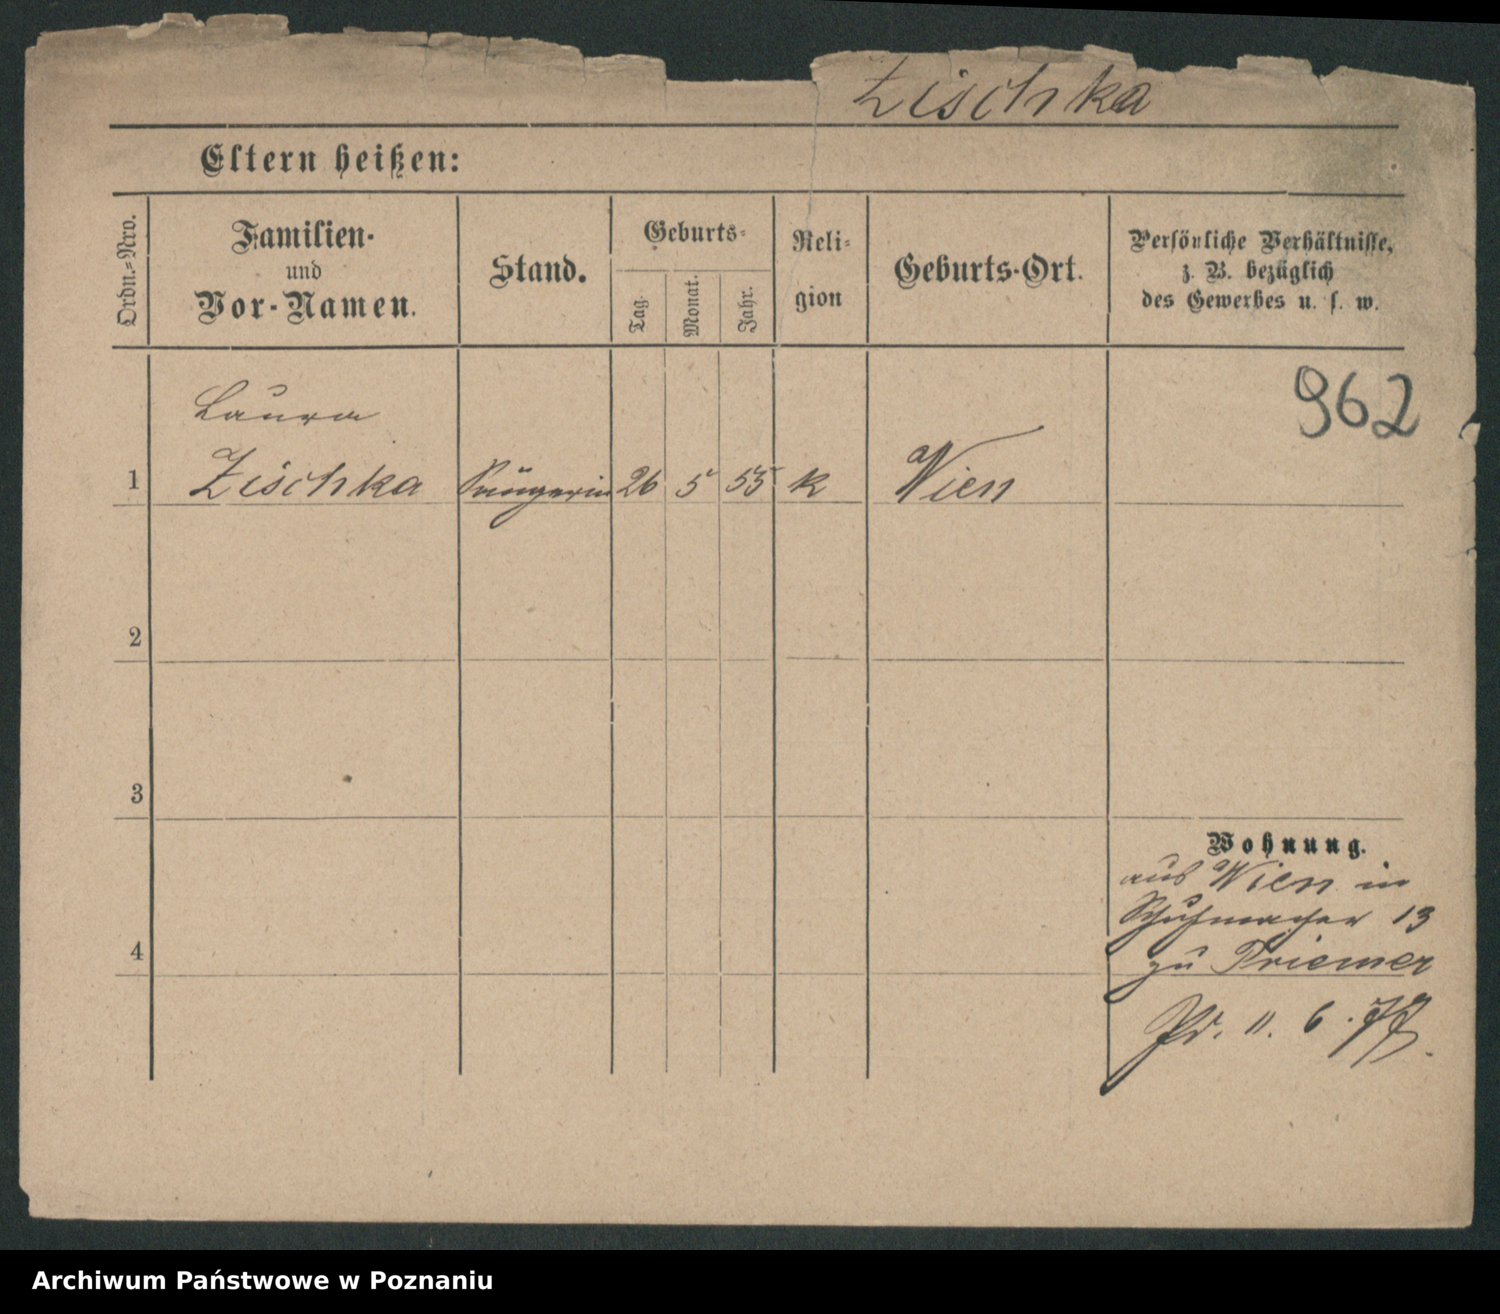 Zischka
Eltern heißen:
Ordn.-Nro.
Familien-
und
Vor-Namen.
Stand.
Geburts-
Tag.
Monat.
Jahr.
Reli-
gion
Geburts-Ort.
Persönliche Verhältnisse,
z. B. bezüglich
des Gewerbes u. s. w.
962
Laura
1 Zischka Sängerin 26 5 55 k Wien
2
3
Wohnung.
aus Wien in
Schuhmacher 13
4
zu Priemer
11. 6. 77.
Archiwum Państwowe w Poznaniu